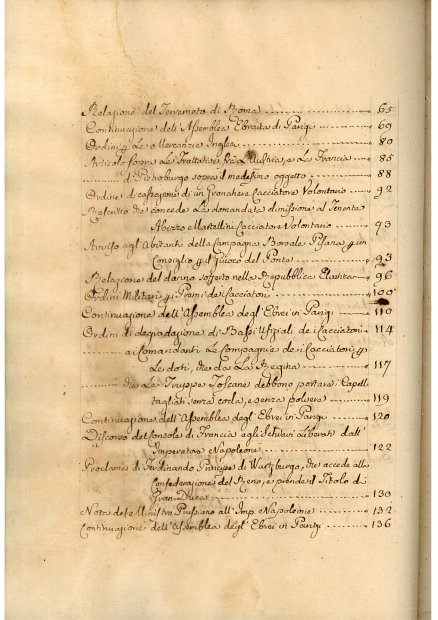 Relazione del Terremoto di Roma 65
Continuazione dell'Assemblea Ebraica di Parigi 69
Ordini p. Le Mercanzie Inglesi 80
Articoli sopra Le Trattative fra L'Austria, e La Francia 85
di Pietroburgo sopra il medesimo oggetto 88
Ordine di cassazione di un Granatiere Cacciatore Volontario 92
Rescritto che concede La domandata dimissione al Tenente
Alvizo Martellini Cacciatore Volontario 93
Avviso agl'Abitanti della Campagna Pisana p. un
Consiglio p. il Giuoco del Ponte 93
Relazione del danno sofferto nella Repubblica Elvetica 96
Ordini Militari p. i Premi de Cacciatori 100
Continuazione dell'Assemblea degl'Ebrei in Parigi 110
Ordini di degradazione di Bassi Ufiziali de i Cacciatori 114
ai Comandanti Le Compagnie de i Cacciatori p.
Le doti, che da La Regina 117
che Le Truppe Toscane debbono portare i Capelli
tagliati senza coda, e senza polvere 119
Continuazione dell'Assemblea degl'Ebrei in Parigi 120
Discorso del Console di Francia agli Schiavi Liberati dall'
Imperatore Napoleone 122
Proclama di Ferdinando Principe di Wurtzburgo, che accede alla
Confederazione del Reno, e prende il Titolo di
Gran-Duca 130
Nota del Ministro Prussiano all'Imp. Napoleone 132
Continuazione dell'Assemblea degl'Ebrei in Parigi 136